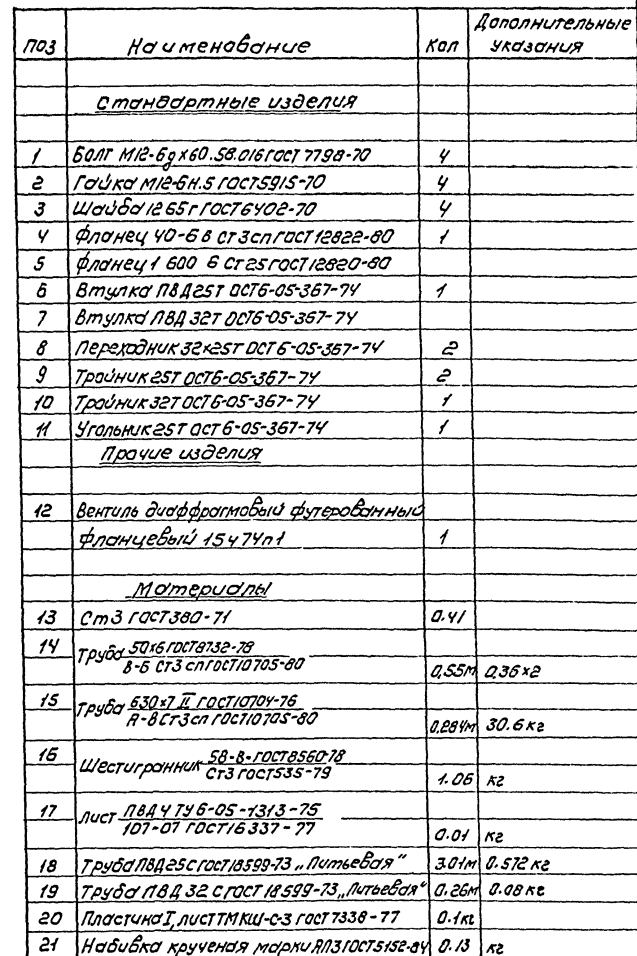 поз Наименование Кол Дополнительные указания
Стандартные изделия
1 Болт М12-6g×60.58.016 ГОСТ 7798-70 4
2 Гайка М12-6Н.5 ГОСТ 5915-70 4
3 Шайба 12 65Г ГОСТ 6402-70 4
4 Фланец 40-6 в ст3сп ГОСТ 12822-80 1
5 Фланец 1 600 6 Ст25 ГОСТ 12820-80
6 Втулка ПВД 25Т ОСТ6-05-367-74 1
7 Втулка ПВД 32Т ОСТ6-05-367-74
8 Переходник 32×25Т ОСТ 6-05-367-74 2
9 Тройник 25Т ОСТ6-05-367-74 2
10 Тройник 32Т ОСТ6-05-367-74 1
11 Угольник 25Т ОСТ 6-05-367-74 1
Прочие изделия
12 Вентиль диаффрагмовый футерованный
фланцевый 15ч74п1 1
Материалы
13 Ст3 ГОСТ 380-71 0.41
14 Труба 50×6 ГОСТ 8732-78
В-Б Ст3 сп ГОСТ 10705-80 0,55м 0,36×2
15 Труба 630×7 II ГОСТ 10704-76
А-В Ст3 сп ГОСТ 10705-80 0,284м 30.6 кг
16 Шестигранник 58-В-ГОСТ 8560-78
Ст3 ГОСТ 535-79 1.06 кг
17 Лист ПВД Ч ТУ 6-05-1313-75
107-07 ГОСТ 16337-77 0.01 кг
18 Труба ПВД 25 С ГОСТ 18599-73 „Питьевая" 3.01м 0.572 кг
19 Труба ПВД 32 С ГОСТ 18599-73 „Питьевая" 0.26м 0.08 кг
20 Пластина I, лист ТМКЩ-С-3 ГОСТ 7338-77 0.1кг
21 Набивка крученая марки ЯП3 ГОСТ 5152-84 0.13 кг